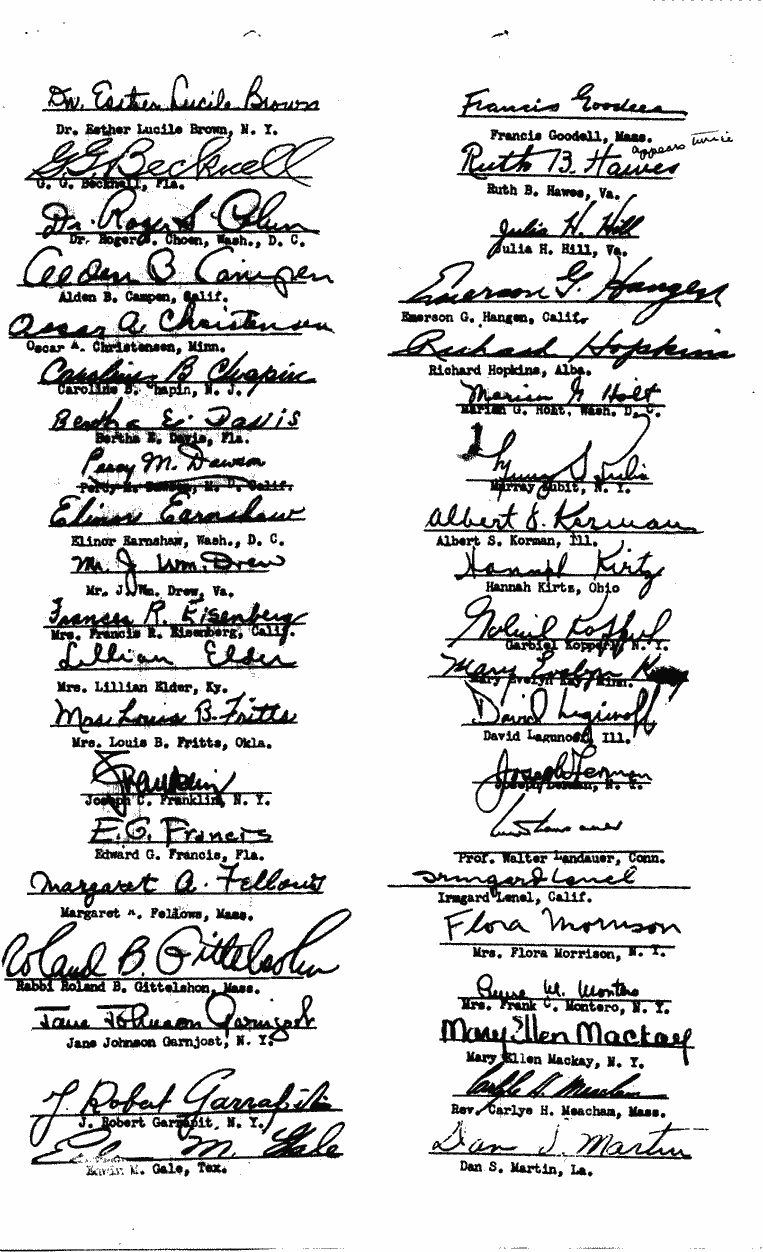 Dr. Esther Lucile Brown
Dr. Esther Lucile Brown, N. Y.
G. G. Becknell
G. G. Becknell, Fla.
Dr. Roger S. Cohen
Dr. Roger S. Choen, Wash., D. C.
Alden B Campen
Alden B. Campen, Calif.
Oscar A. Christensen
Oscar A. Christensen, Minn.
Caroline B Chapin
Caroline B. Chapin, N. J.
Bertha E. Davis
Bertha E. Davis, Fla.
Percy M. Dawson
Percy M. Dawson, M. D. Calif.
Elinor Earnshaw
Elinor Earnshaw, Wash., D. C.
Mr. J Wm. Drew
Mr. J. Wm. Drew, Va.
Frances R. Eisenberg
Mrs. Francis R. Eisenberg, Calif.
Lillian Elder
Mrs. Lillian Elder, Ky.
Mrs. Louis B. Fritts
Mrs. Louis B. Fritts, Okla.
Franklin
Joseph C. Franklin, N. Y.
E. G. Francis
Edward G. Francis, Fla.
Margaret A. Fellows
Margaret A. Fellows, Mass.
Roland B. Gittelsohn
Rabbi Roland B. Gittelshon, Mass.
Jane Johnson Garnjost
Jane Johnson Garnjost, N. Y.
J. Robert Garrapit
J. Robert Garrapit, N. Y.
M. Gale
Edwin M. Gale, Tex.
Francis Goodell
Francis Goodell, Mass.
appears twice
Ruth B. Hawes
Ruth B. Hawes, Va.
Julia H. Hill
Julia H. Hill, Va.
Emerson G. Hangen
Emerson G. Hangen, Calif.
Richard Hopkins
Richard Hopkins, Alba.
Marian G Holt
Marian G. Holt, Wash. D. C.
Murray Jubit, N. Y.
Albert S. Korman
Albert S. Korman, Ill.
Hannah Kirtz
Hannah Kirts, Ohio
Gabriel Kopperl
Garbiel Kopperl, N. Y.
Mary Evelyn Kay
Mary Evelyn Kay, Minn.
David Lagunoff
David Lagunoff, Ill.
Joseph Lerman
Joseph Lerman, N. Y.
Landauer
Prof. Walter Landauer, Conn.
Irmgard Lenel
Irmgard Lenel, Calif.
Flora Morrison
Mrs. Flora Morrison, N. Y.
Anne M. Montero
Mrs. Frank C. Montero, N. Y.
Mary Ellen Mackay
Mary Ellen Mackay, N. Y.
Carlyle H. Meacham
Rev. Carlye H. Meacham, Mass.
Dan S. Martin
Dan S. Martin, La.